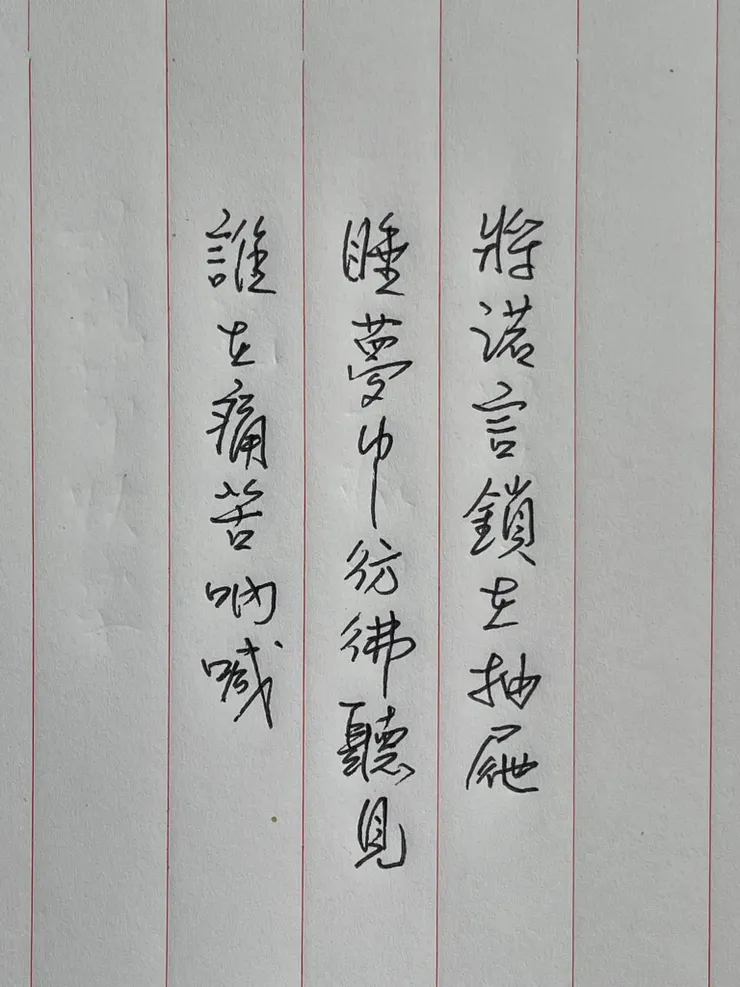 將諾言鎖在抽屜
睡夢中彷彿聽見
誰在痛苦吶喊